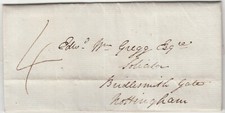 4
Edwd. Wm Gregg Esqre
Solicitor
Bridlesmith Gate
Nottingham